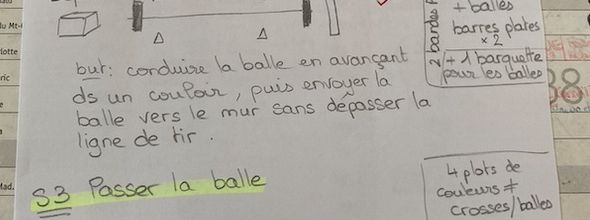 + balles
barres plates
x 2
2 bandes
+ 1 barquette
pour les balles
but: conduire la balle en avançant
ds un couloir, puis envoyer la
balle vers le mur sans dépasser la
ligne de tir.
S3 Passer la balle
4 plots de
couleurs ≠
crosses/balles
lotte
ric
lad.